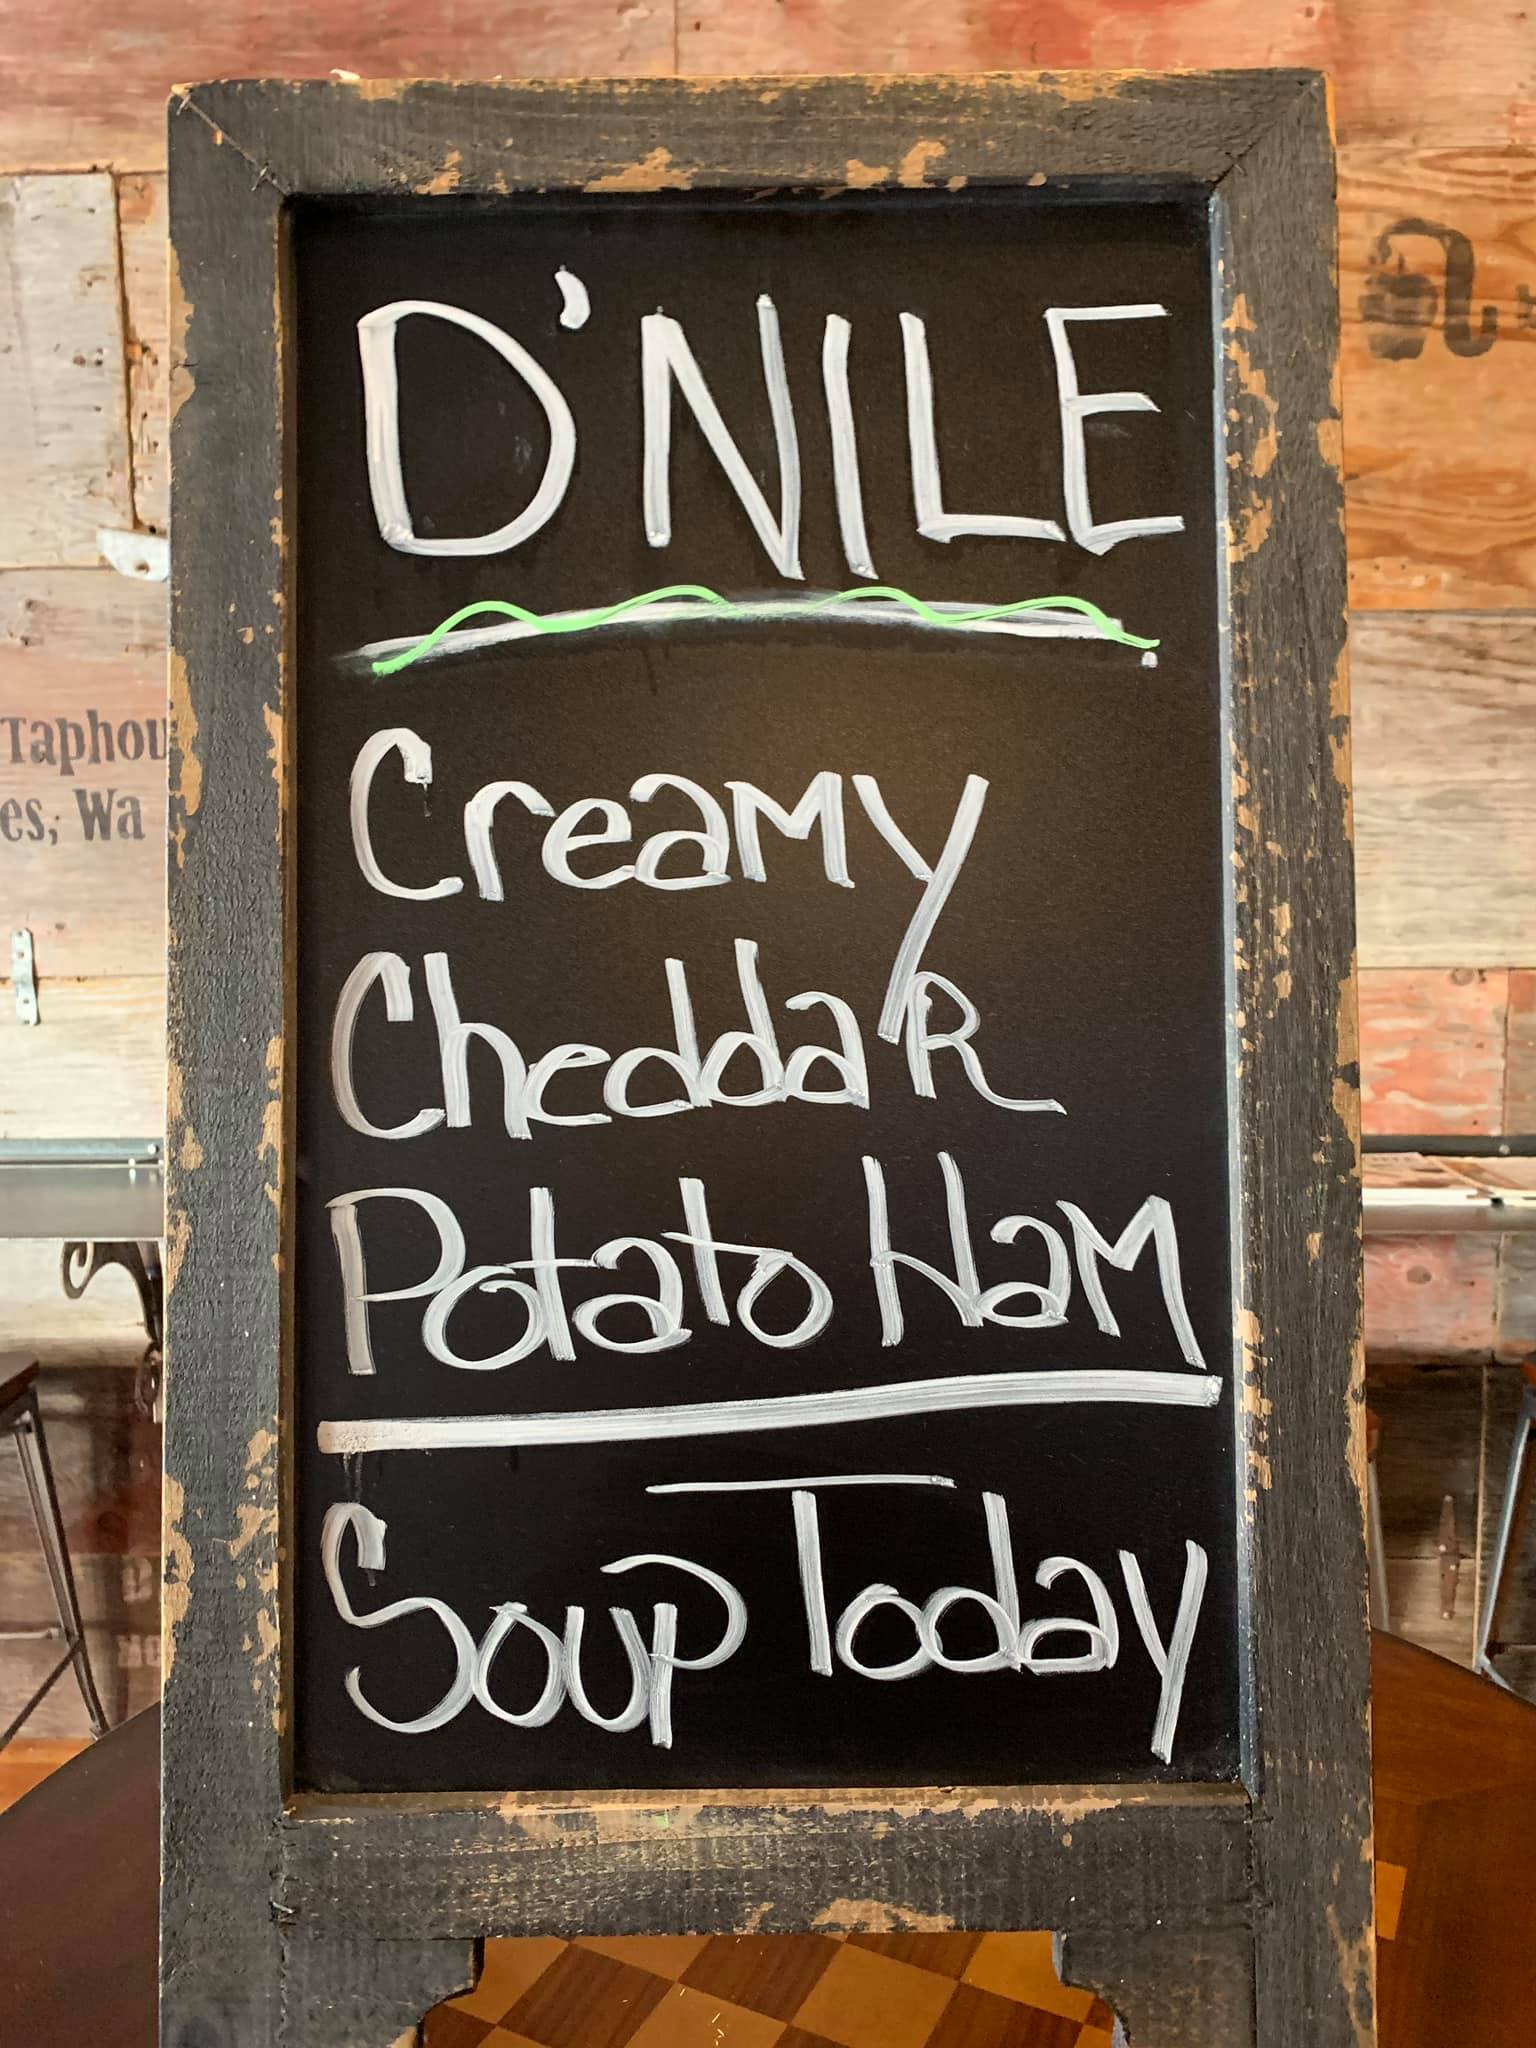 D'NILE
Creamy
Cheddar
Potato Ham
Soup Today
Taphou
es, Wa